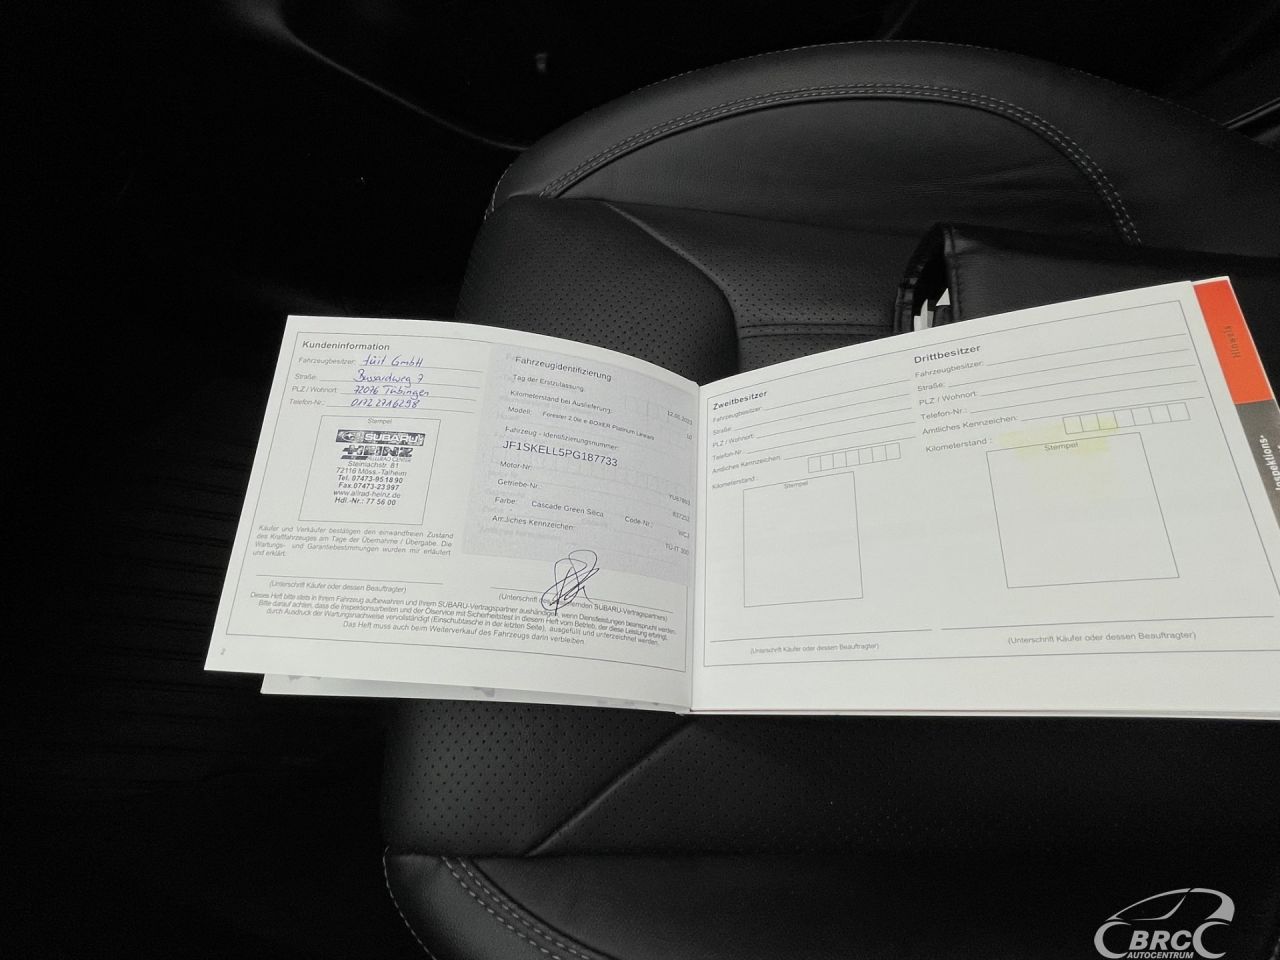 Kundeninformation
Fahrzeugbesitzer: GmbH
Straße: Bussardweg 7
PLZ / Wohnort: 72076 Tübingen
Telefon-Nr.: 0172 2716298
Stempel
SUBARU
HEINZ
ALLRAD CENTER
Steinlachstr. 81
72116 Möss.-Talheim
Tel. 07473-951890
Fax.07473-23997
www.allrad-heinz.de
Hdl.-Nr.: 77 56 00
Käufer und Verkäufer bestätigen den einwandfreien Zustand
des Kraftfahrzeuges am Tage der Übernahme / Übergabe. Die
Wartungs- und Garantiebestimmungen wurden mir erläutert
und erklärt.
(Unterschrift Käufer oder dessen Beauftragter)
Fahrzeugidentifizierung
Tag der Erstzulassung:
12.05.2023
Kilometerstand bei Auslieferung:
10
Modell: Forester 2.0ie e-BOXER Platinum Lineartr.
Fahrzeug - Identifizierungsnummer:
JF1SKELL5PG187733
Motor-Nr.:
Getriebe-Nr.:
Farbe: Cascade Green Silica Code-Nr.: WCJ
Amtliches Kennzeichen: TÜ-IT 300
(Unterschrift des SUBARU-Vertragspartners)
Dieses Heft bitte stets in Ihrem Fahrzeug aufbewahren und Ihrem SUBARU-Vertragspartner aushändigen, wenn Dienstleistungen beansprucht werden.
Bitte darauf achten, dass die Inspektionsarbeiten und der Ölservice mit Sicherheitstest in diesem Heft vom Betrieb, der diese Leistung erbringt,
durch Ausdruck der Wartungsnachweise vervollständigt (Einschubtasche in der letzten Seite), ausgefüllt und unterzeichnet werden.
Das Heft muss auch beim Weiterverkauf des Fahrzeugs darin verbleiben.
2
Zweitbesitzer
Fahrzeugbesitzer:
Straße:
PLZ / Wohnort:
Telefon-Nr.:
Amtliches Kennzeichen:
Kilometerstand :
Stempel
(Unterschrift Käufer oder dessen Beauftragter)
Drittbesitzer
Fahrzeugbesitzer:
Straße:
PLZ / Wohnort:
Telefon-Nr.:
Amtliches Kennzeichen:
Kilometerstand :
Stempel
(Unterschrift Käufer oder dessen Beauftragter)
Hinweis
Inspektions-
BRC
AUTOCENTRUM